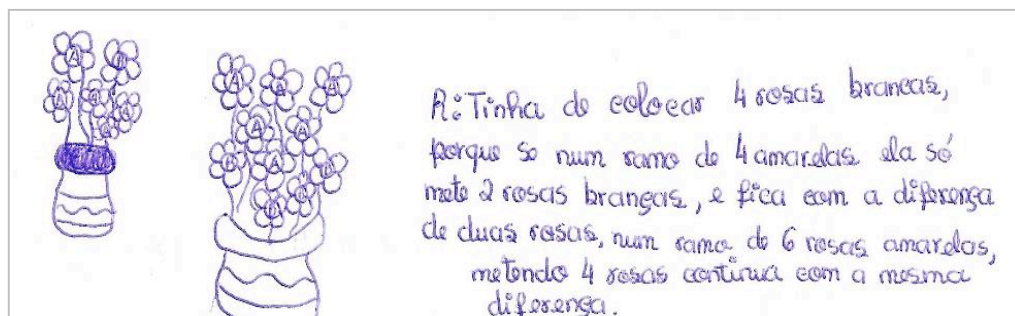 R: Tinha de colocar 4 rosas brancas,
porque se num ramo de 4 amarelas ela só
mete 2 rosas branças, e fica com a diferença
de duas rosas, num ramo de 6 rosas amarelas,
metendo 4 rosas continua com a mesma
diferença.